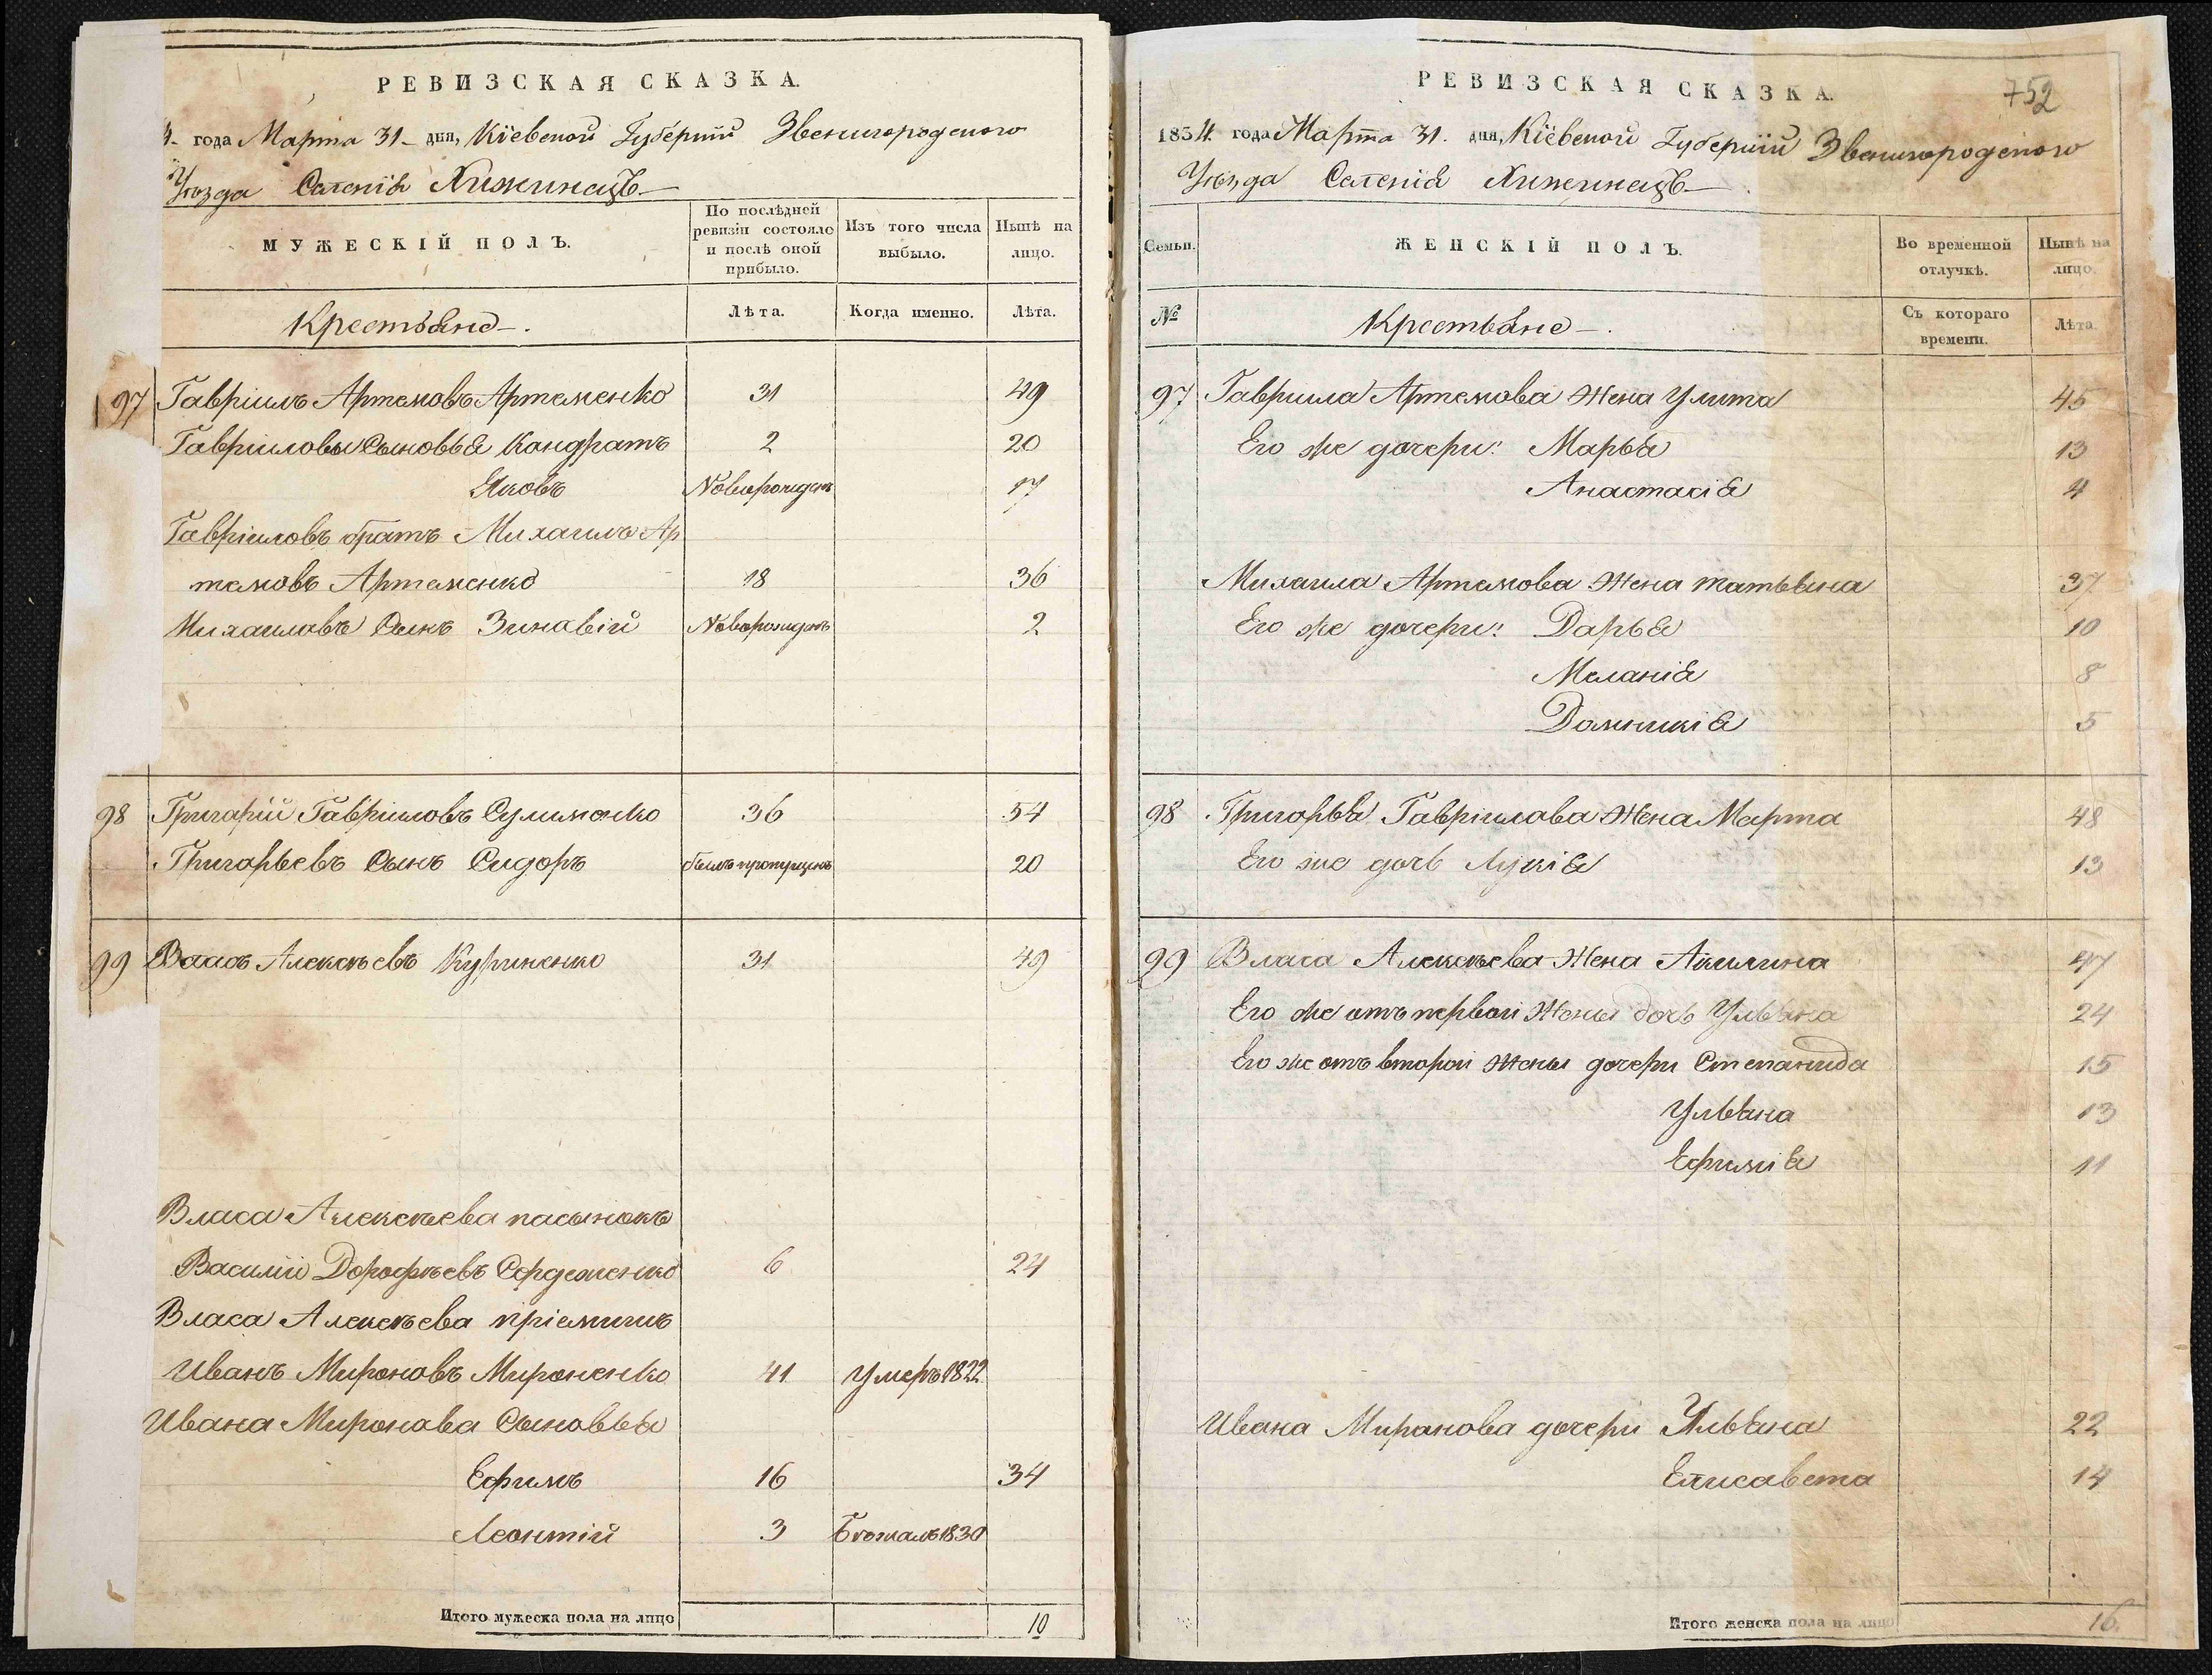 РЕВИЗСКАЯ СКАЗКА.
4. года Марта 31 дня, Кіевской Губерніи Звенигородского
Уѣзда Селенія Хижинецъ
МУЖЕСКІЙ ПОЛЪ.
По послѣдней ревизіи состояло и послѣ оной прибыло.
Изъ того числа выбыло.
Нынѣ на лицо.
Крестьяне.
Лѣта.
Когда именно.
Лѣта.
97 Гавріилъ Артемовъ Артеменко 31 49
Гавриловы Сыновья Кондратъ 2 20
Яковъ Новорожденъ 17
Гавріиловъ братъ Михаилъ Ар
темовъ Артеменко 18 36
Михаиловъ Сынъ Зинавій Новорожденъ 2
98 Григорій Гавріиловъ Сулименко 36 54
Григорьевъ Сынъ Сидоръ былъ пропущенъ 20
99 Власъ Алексѣевъ Куриненко 31 49
Власа Алексѣева пасынокъ
Василій Дорофѣевъ 6 24
Власа Алексѣева пріемышъ
Иванъ Мироновъ Мироненко 41 Умеръ 1822
Ивана Миронова Сыновья
Ефимъ 16 34
Леонтій 3 Бѣжалъ 1830
Итого мужеска пола на лицо 10
РЕВИЗСКАЯ СКАЗКА.
752
1834. года Марта 31. дня, Кіевской Губерніи Звенигородского
Уѣзда Селенія Хижинецъ
Семьи.
ЖЕНСКІЙ ПОЛЪ.
Во временной отлучкѣ.
Нынѣ на лицо.
№
Крестьяне.
Съ котораго времени.
Лѣта.
97 Гавриила Артемова Жена Улита 45
Его же дочери: Марья 13
Анастасія 4
Михаила Артемова Жена Татьяна 37
Его же дочери: Дарья 10
Меланія 8
Домникія 5
98 Григорья Гавріилова Жена Марта 48
Его же дочь Лукія 13
99 Власа Алексѣева Жена Акилина 47
Его же отъ первой Жены дочь Ульяна 24
Его же отъ второй Жены дочери Степанида 15
Ульяна 13
Ефимія 11
Ивана Миронова дочери Ульяна 22
Елисавета 14
Итого женска пола на лицо 16